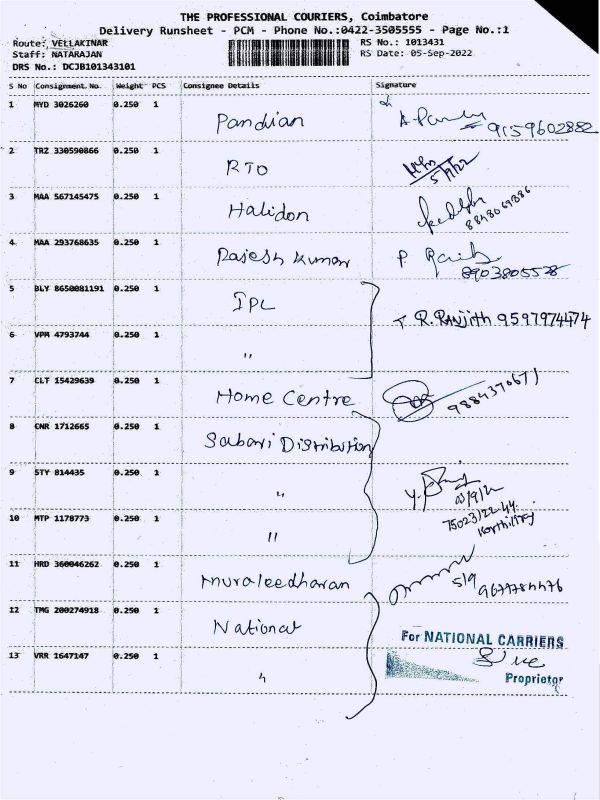 THE PROFESSIONAL COURIERS, Coimbatore
Delivery Runsheet - PCM - Phone No.:0422-3505555 - Page No.:1
Route: VELLAKINAR
RS No.: 1013431
Staff: NATARAJAN
RS Date: 05-Sep-2022
DRS No.: DCJB101343101
S No Consignment. No. Weight PCS Consignee Details Signature
1 MYD 3026260 0.250 1 Pandian 9159602882
2 TRZ 330590866 0.250 1 RTO 5/9/22
3 MAA 567145475 0.250 1 Halidon
4 MAA 293768635 0.250 1 Rajesh Kumar 8903805528
5 BLY 8650081191 0.250 1 IPL
R. Ranjith 9597974474
6 VPM 4793744 0.250 1 "
7 CLT 15429639 0.250 1 Home Centre 9884370671
8 CNR 1712665 0.250 1 Sabari Distribution
9 STY 814435 0.250 1 "
10 MTP 1178773 0.250 1 "
11 HRD 360046262 0.250 1 Muraleedharan 5/9
12 TMG 200274918 0.250 1 National
For NATIONAL CARRIERS
13 VRR 1647147 0.250 1 "
Proprietor